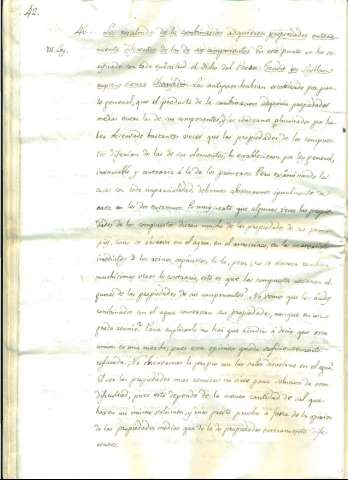 42.
40. Los resultados de la combinacion adquieren propiedades entera-
VI. Ley. mente diferentes de las de sus componentes. En este punto se ha ve-
rificado con toda el dicho del Poeta:
Los antiguos habian establecido por prin-
cipio general, que el producto de la combinacion adquiria propiedades
medias entre las de sus componentes, y los modernos por ha-
ber observado bastantes veces que las propiedades de los compues-
tos diferian de las de sus elementos, lo establecieron por ley general,
invariable, y contraria á la de los primeros. Pero examinando las
cosas con toda imparcialidad, debemos abstenernos igualmente de
caer en los dos extremos. Es muy cierto que algunas veces las propie-
dades de los compuestos distan mucho de las propiedades de sus princi-
pios, como se observa en el agua, en el amoniaco, en
de los reinos orgánicos &c. &c., pero se observa tambien
muchisimas veces lo contrario, esto es que los compuestos retienen al-
gunas de las propiedades de sus componentes. No vemos que los ácidos
combinados con el agua conservan sus propiedades, aunque en un
grado menor? Para no hai que acudir á decir que esta
union es una mezcla, pues esta opinion queda suficientemente
refutada. No observamos lo propio en las sales disueltas en el agua?
El ser las propiedades mas no pone de esta
dificultad, pues esto depende de la menor cantidad de sal que
hai en un mismo volúmen, y mas presto prueba á favor de la opinion
de las propiedades medias que de la de propiedades enteramente dife-
rentes.